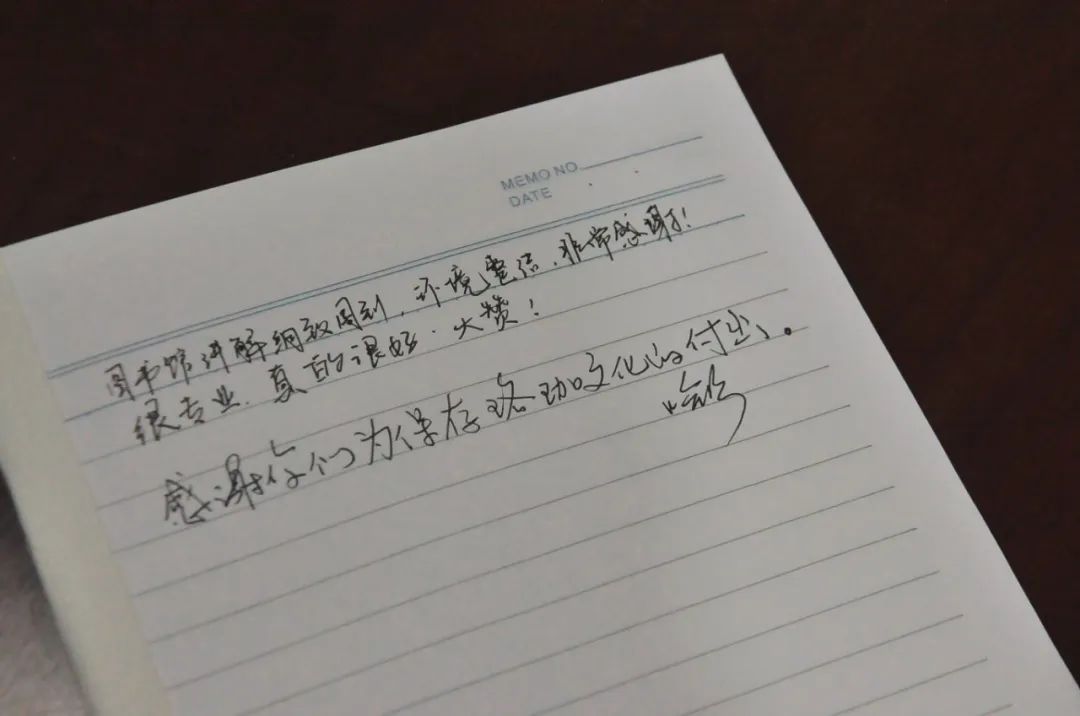 MEMO NO
DATE
图书馆讲解细致周到，环境整洁，非常感谢！
很专业，真的很好，大赞！
感谢你们为保存珞珈文化的付出。